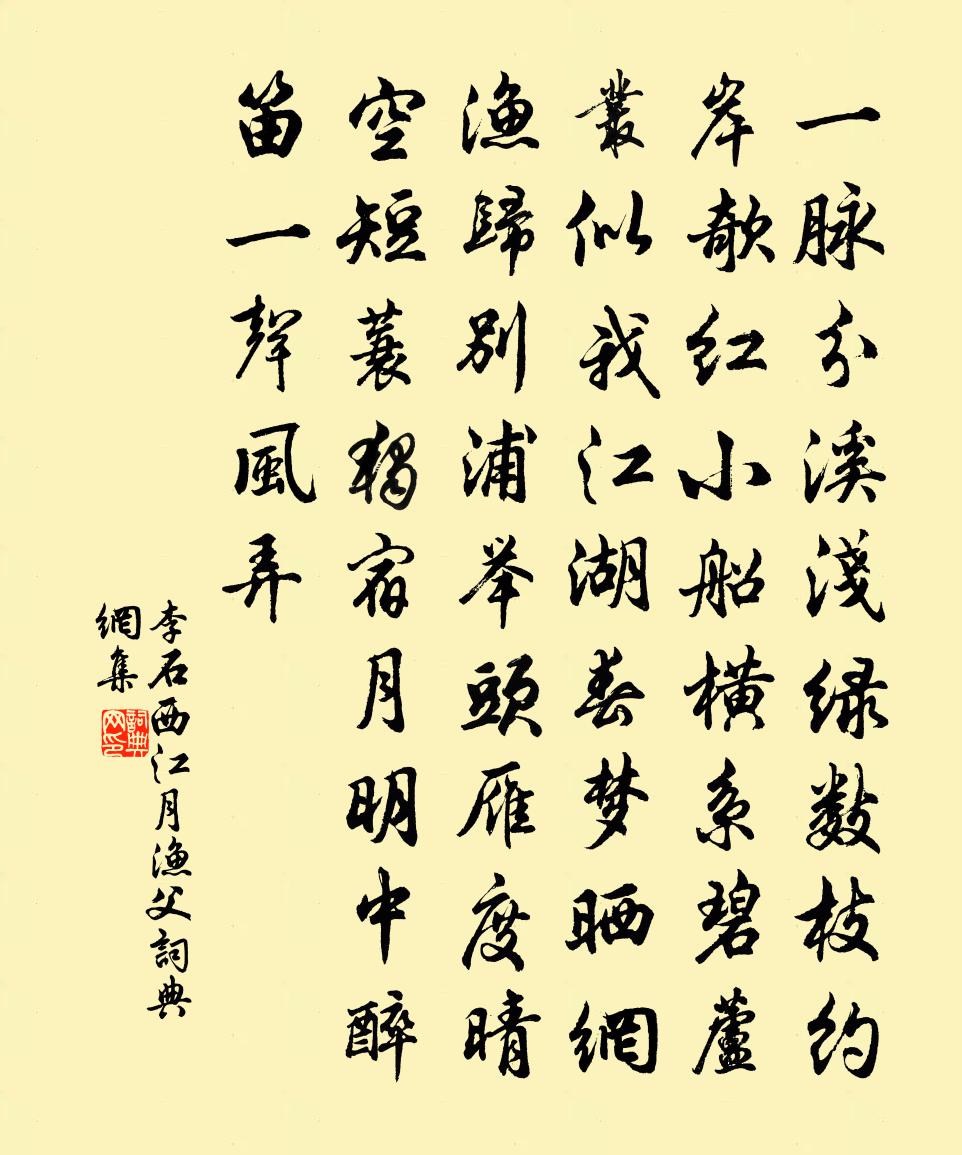 一脉分溪淺绿数枝约
岸欹红小船橫系碧蘆
叢似我江湖春梦晒網
渔歸别浦举頭雁度晴
空短蓑独宿月明中醉
笛一聲風弄
李石西江月渔父詞典
網集
詞典
网印